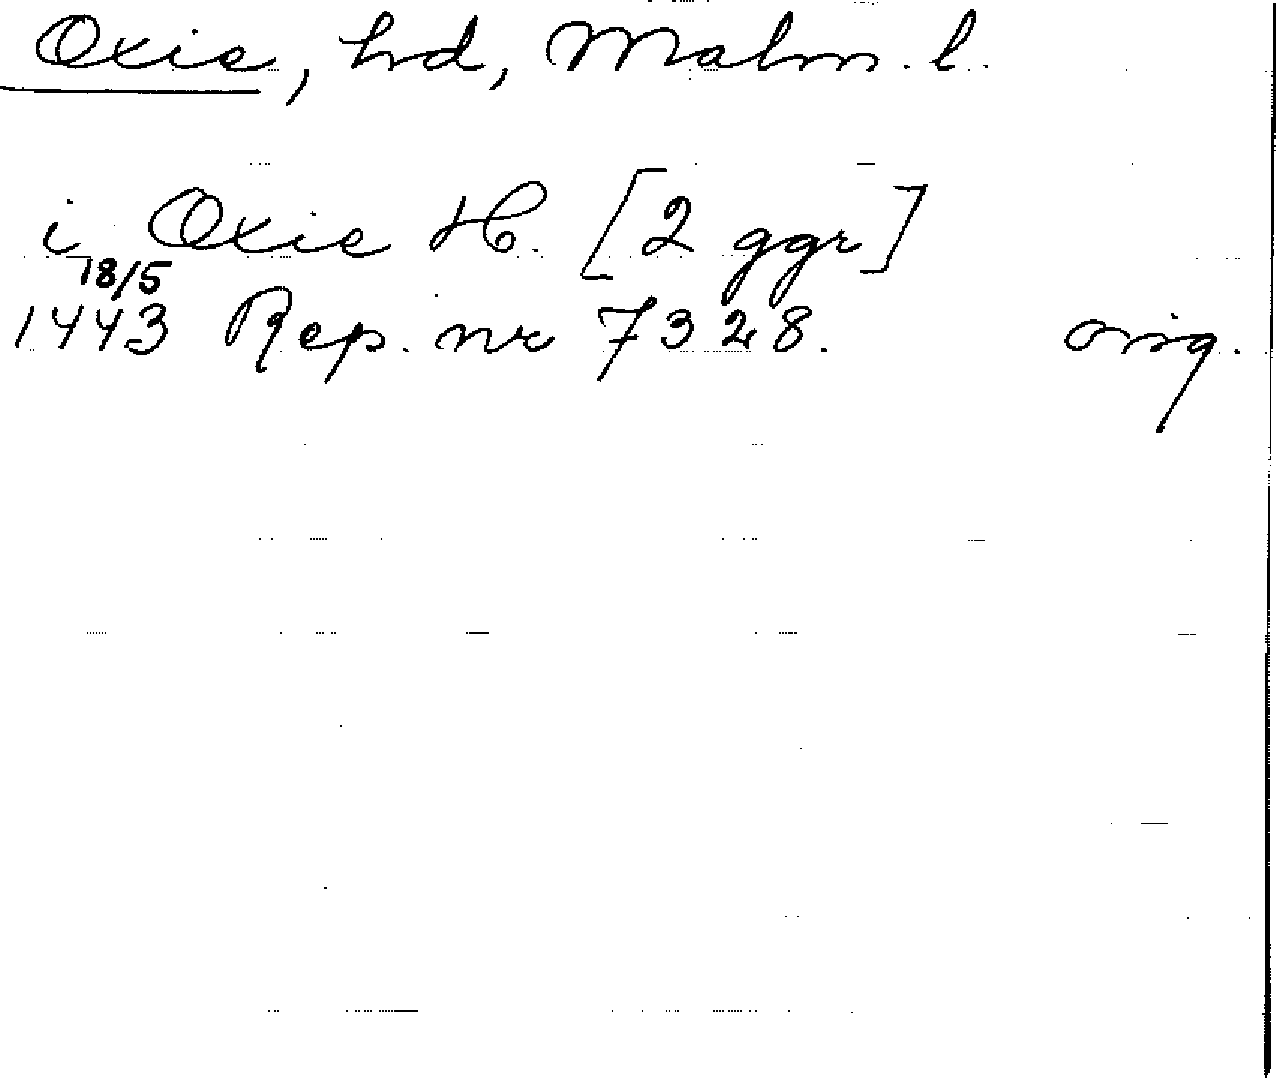 Oxie, hd, Malm. l.
i Oxie H. [2 ggr]
18/5
1443 Rep. nr 7328. orig.